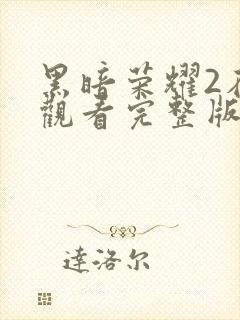 黑暗荣耀2
觀看完整版
達洛尔